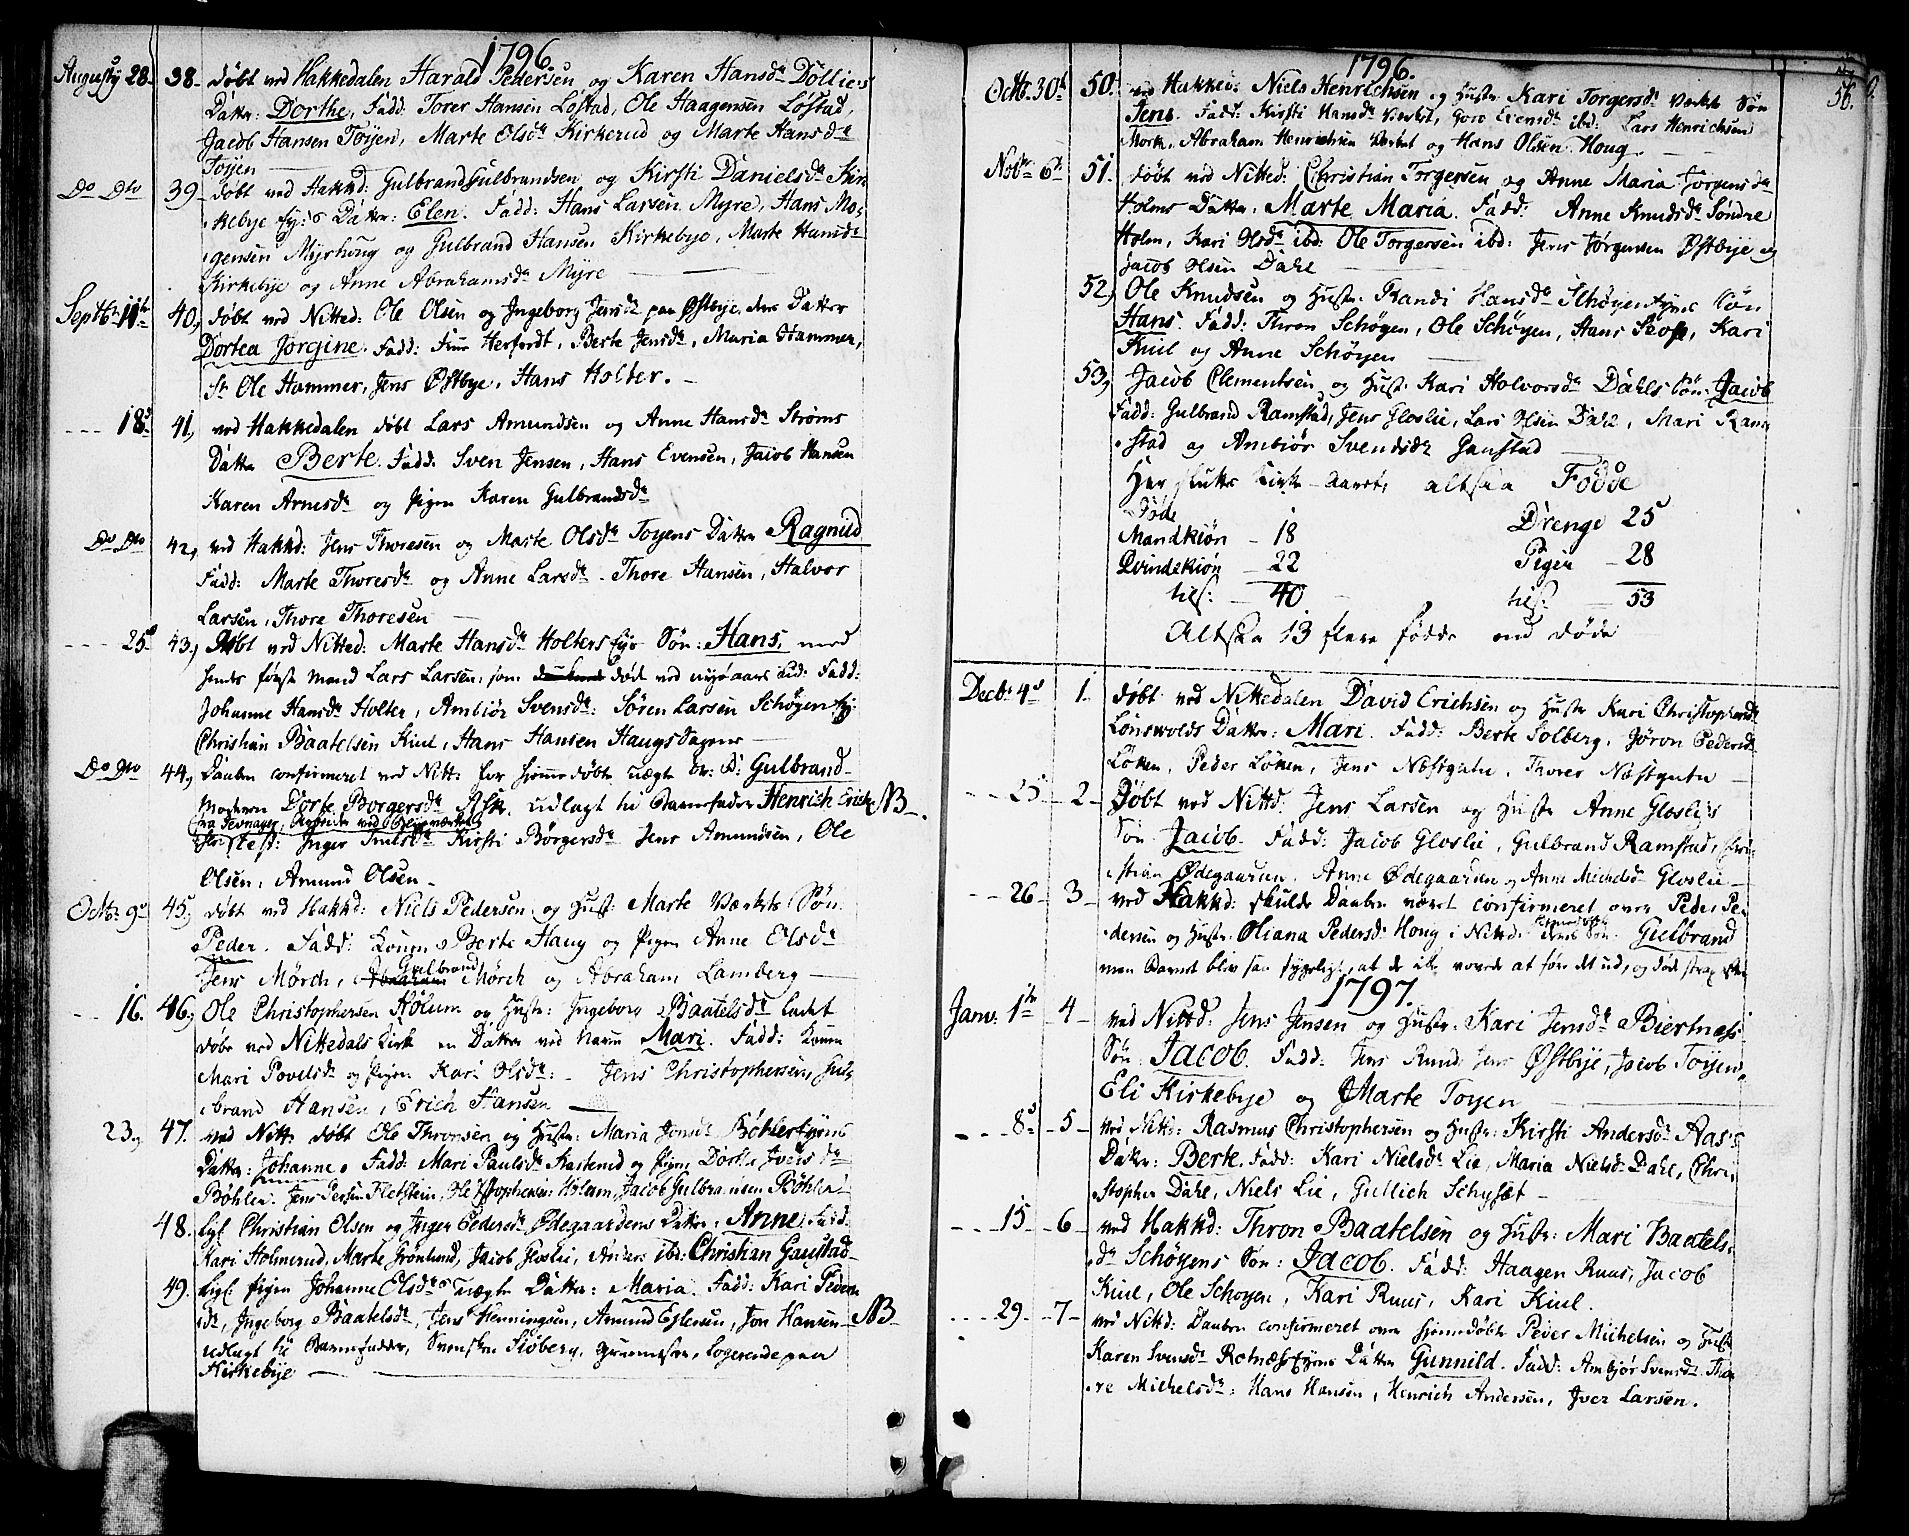 1796.
Augusty 28. 38. døbt ved Hakkedalen Harald Pedersen og Karen Hansdr Døllies
Datter: Dorthe, Fadd: Torer Hansen Løstad, Ole Haagensen Løstad,
Jacob Hansen Tøyen, Marte Olsdr Kirkerud og Marte Hansdr
Tøyen
Do Dto 39. døbt ved Hakkd: Gulbrand Gulbrandsen og Kirsti Danielsdr
Kirkebye Datter: Elen. Fadd: Hans Larsen Myre, Hans Mo-
gensen Myrhoug og Gulbrand Hansen Kirkebye, Marte Hansdr
Kirkebye og Anne Abrahamsdr Myre
Septbr 11te 40, døbt ved Nitted: Ole Olsen og Jngeborg Jensdr paa Østbye Datter
Dortea Jørgine. Fadd: Herfordt, Berte Jensdr, Maria Hammer,
Sr Ole Hammer, Jens Østbye, Hans Holter.
18. 41, ved Hakkedalen døbt Lars Amundsen og Anne Hansdr Strøms
Datter Berte. Fadd: Sven Jensen, Hans Evensen, Jacob Hansen
Karen Arnesdr og Pigen Karen Gulbrandsdr
Do Dto 42, ved Hakkd: Jens Thoresen og Marte Olsdr Toyens Datter Ragnild
Fadd: Marte Thoresdr og Anne Larsdr. Thore Hansen, Halvor
Larsen, Thore Thoresen
25 43, Døbt ved Nitted: Marte Hansdr Holters Søn: Hans, med
hendes første Mand Lars Larsen, som død ved nyeaars tid: Fadd:
Johanne Hansdr Holter, Ambiør Svensdr: Søren Larsen Schøgen
Christian Baatelsen Kiul, Hans Hansen Haugs
Do Dto 44, Daaben confirmeret ved Nitt: hiemmedøbte uægte Gulbrand
Moderen Dorte Borgersdr Ask, udlagt til Barnefader Henrich NB
Test: Inger Kirsti Børgersdr Jens Amundsen, Ole
Olsen, Amund Olsen
Octbr 9 45, døbt ved Hakkd: Niels Pedersen og Hustr: Marte Værkets Søn
Peder. Fadd: Konen Berte Haug og Pigen Anne Olsdr
Jens Mørch, Gulbrand Mørch og Abraham Lamberg
16. 46, Ole Christophersen Hølum og Hustr: Jngeborg Baatelsdr ladet
døbe ved Nittedals Kirke en Datter ved Navn Mari. Fadd: Konen
Mari Povelsdr og Pigen Kari Olsdr: Jens Christophersen, Gul-
brand Hansen, Erich Hansen
23, 47. ved Nitt: døbt Ole Thronsen og Hustr: Maria Jonsdr Bøhlereyens
Datter: Johanne. Fadd: Mari Paulsdr Kasterud og Pigen Dorthe Iversdr
Bøhler. Jens Fletstein, Ole Christophersen Hølum, Jacob Gulbransen Bøhler
48. Christian Olsen og Inger Pedersdr Ødegaardens Datter, Anne, Fadd:
Kari Holmerud, Marte Grønlund, Jacob Gloslie, Anders ibd: Christian Gaustad
49. Pigen Johanne Olsdr uægte Datter: Maria. Fadd: Kari Peders
dr, Jngeborg Baatelsdr, Jens Henningsen, Amund Eilersen, Jon Hansen NB
udlagt til Barnefader, Svensken Siøberg, logerende paa
Kirkebye
1796.
56.
Octbr. 30t 50. ved Hakked: Niels Henrichsen og Hustr Kari Torgersdr Værket Søn
Jens. Fadd: Kirsti Hansdr Værket, Gore Evensdr ibd: Lars Henrichsen
Mork, Abraham Henrichsen Værket og Hans Olsen Houg
Novbr 6te 51. døbt ved Nitted: Christian Torgersen og Anne Maria Jørgensdr
Holms Datter, Marte Maria. Fadd: Anne Knudsdr Søndre
Holm, Kari Olsdr ibd: Ole Torgersen ibd: Jens Jørgensen Østbye og
Jacob Olsen Dahl
52, Ole Knudsen og Hustr: Randi Hansdr Schøyen Søn
Hans. Fadd: Thron Schøgen, Ole Schøyen, Hans Skof, Kari
Kiul og Anne Schøyen
53, Jacob Clementsen og Hustr: Kari Holvorsdr Dahls Søn: Jacob
Fadd: Gulbrand Ramstad, Jens Gloslie, Lars Olsen Dahl, Mari Ram-
stad og Ambiør Svendsdr Gaustad
Her slutter Kirke-Aaret, altsaa Fødde
Døde
Mandkiøn - 18 Drenge 25
Qvindekiøn - 22 Piger - 28
tils: - 40 tils: - 53
Altsaa 13 flere fødde end døde
Decbr 4d 1. døbt ved Nittedalen David Erichsen og Hustr Kari Christophersdr
Lønswolds Datter: Mari. Fadd: Berte Solberg, Jøron Pedersdr
Løken, Peder Løken, Jens Næstgutu, Thorer Næstgutu
25 2 Døbt ved Nittd: Jens Larsen og Hustr Anne Gloslies
Søn Jacob. Fadd: Jacob Gloslie, Gulbrand Ramstad, Chri-
stian Ødegaarden, Anne Ødegaarden og Anne Michelsdr Gloslie
26 3 ved Hakkd: skulde Daaben været confirmeret over Peder Pe-
dersen og Hustr: Oliana Pedersdr Houg i Nittd: Søn: Gulbrand
men Barnet blev saa sygeligt, at de ikke vovede at føre det ud, og døde strax efter
1797.
Janv: 1te 4 ved Nittd: Jens Jensen og Hustr: Kari Jensdr Biertnæss
Søn: Jacob. Fadd: Jens Ruud Jens Østbye, Jacob Toyen,
Eli Kirkebye og Marte Toyen
8 5 ved Nittd: Rasmus Christophersen og Hustr: Kirsti Andersdr Aas's
Datter: Berte. Fadd: Kari Nielsdr Lie, Maria Nielsdr Dahl, Chri-
stopher Dahl, Niels Lie, Gullich Schyset
15 6 ved Hakkd: Thron Baatelsen og Hustr: Mari Baatels-
dr Schøyens Søn: Jacob. Fadd: Haagen Ruus, Jacob
Kiul, Ole Schoyen, Kari Ruus, Kari Kiul.
29 7 ved Nittd: Daaben confirmeret over hjemmedøbte Peder Michelsen og Hustr
Karen Svensdr Rotnæss Eyens Datter Gunnild. Fadd: Ambjør Svensdr Tho-
re Michelsdr: Hans Hansen, Henrich Andersen, Iver Larsen.